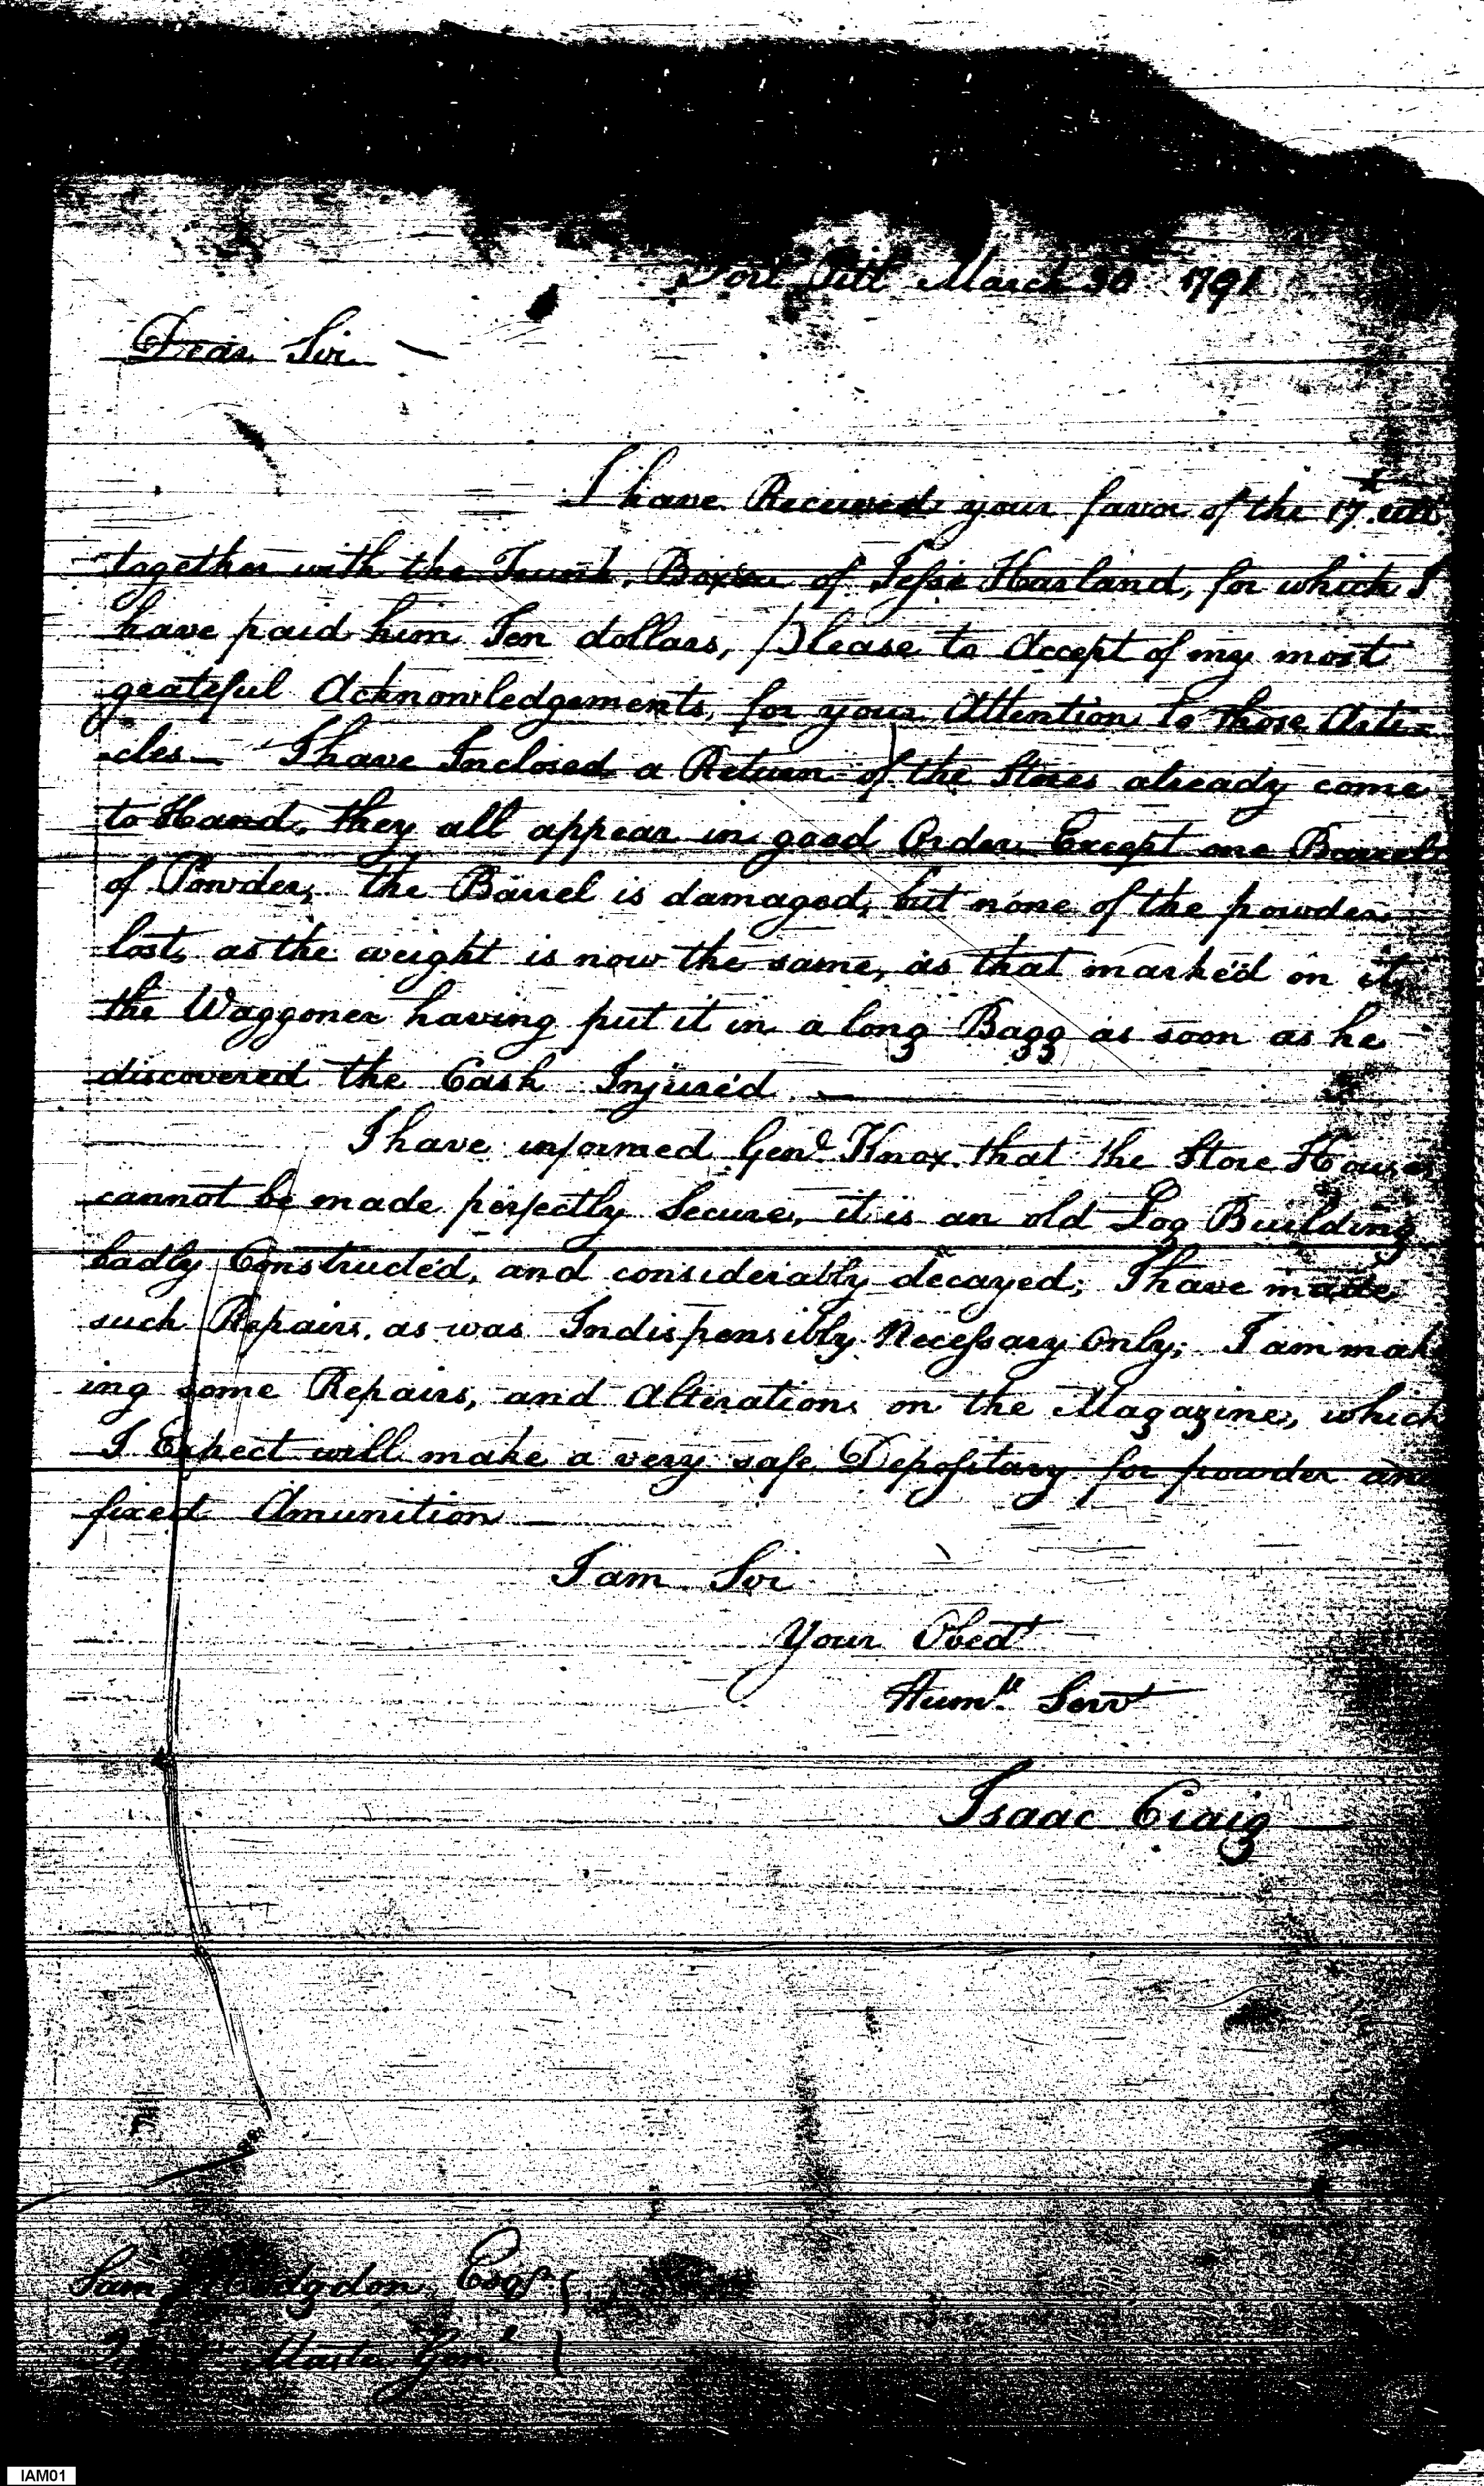 Fort Pitt March 30 1791
Dear Sir
I have Received your favor of the 17th
together with the Trunk, of Jesse Harland, for which I
have paid him Ten dollars, Please to Accept of my most
grateful Acknowledgements, for your Attention to those Arti=
cles — I have Inclosed a Return of the Stores already come
to Hand, they all appear in good Order Except one Barrel
of Powder, the Barrel is damaged, but none of the powder
lost, as the weight is now the same, as that marked on it,
the Waggoner having put it in a long Bagg as soon as he
discovered the Cask Injured
I have informed Genl Knox that the Store House
cannot be made perfectly Secure, it is an old Log Building
badly Constructed, and considerably decayed; I have made
such Repairs, as was Indispensibly Necessary Only; I am mak
ing some Repairs, and Alterations on the Magazine, which
I Expect will make a very safe Depositary for powder and
fixed Amunition
I am Sir
Your Obedt
Humle Servt
Isaac Craig
Sam Hodgdon Esqr
Master Genl
IAM01